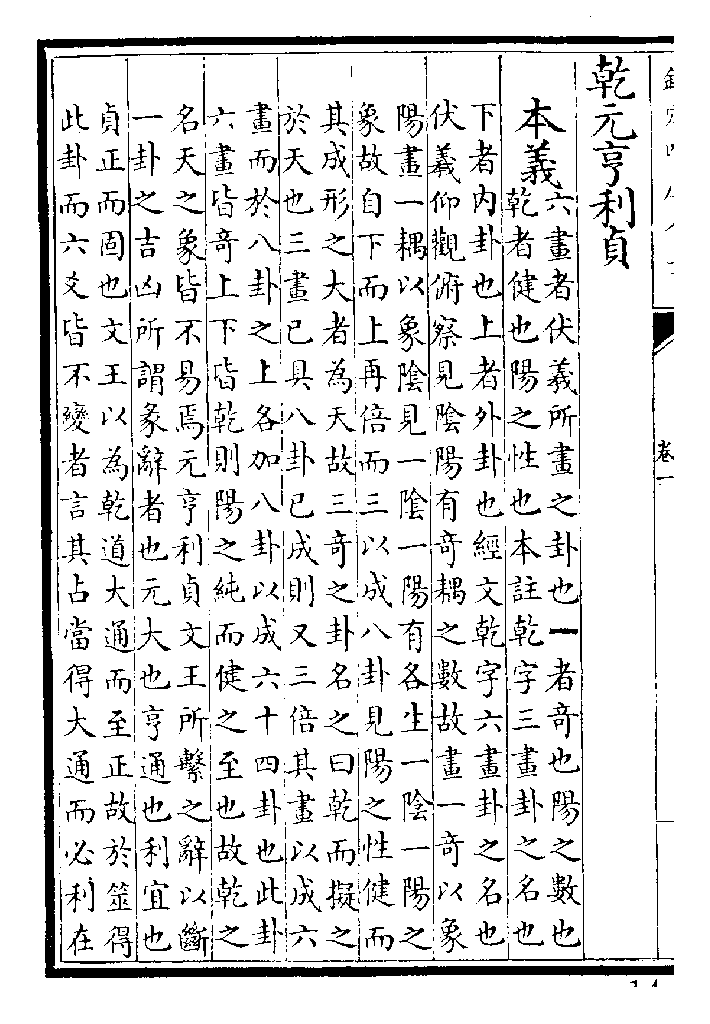 卷一
乾元亨利貞
本義
六畫者伏羲所畫之卦也一者奇也陽之數也
乾者健也陽之性也本註乾字三畫卦之名也
下者内卦也上者外卦也經文乾字六畫卦之名也
伏羲仰觀俯察見陰陽有奇耦之數故畫一奇以象
陽畫一耦以象陰見一陰一陽有各生一陰一陽之
象故自下而上再倍而三以成八卦見陽之性健而
其成形之大者為天故三奇之卦名之曰乾而擬之
於天也三畫已具八卦已成則又三倍其畫以成六
畫而於八卦之上各加八卦以成六十四卦也此卦
六畫皆奇上下皆乾則陽之純而健之至也故乾之
名天之象皆不易焉元亨利貞文王所繫之辭以斷
一卦之吉凶所謂彖辭者也元大也亨通也利宜也
貞正而固也文王以為乾道大通而至正故於筮得
此卦而六爻皆不變者言其占當得大通而必利在